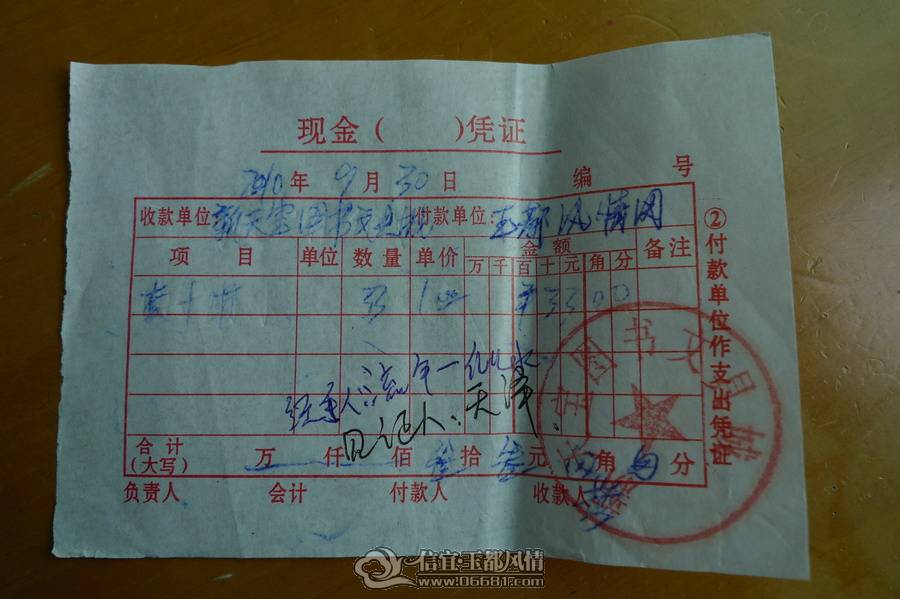 现金（ ）凭证
2010年9月30日 编 号
收款单位：新天雲图书文具城 付款单位：玉都风情网
项目 单位 数量 单价 金额 备注
万 千 百 十 元 角 分
33 1.00 ¥ 33 00
经手人：流年一似水
见证人：天泽
合计（大写） 万 仟 佰 叁拾叁元 角 分
负责人 会计 付款人 收款人
②付款单位作支出凭证
图书文具城
信宜·玉都风情
www.06681.com